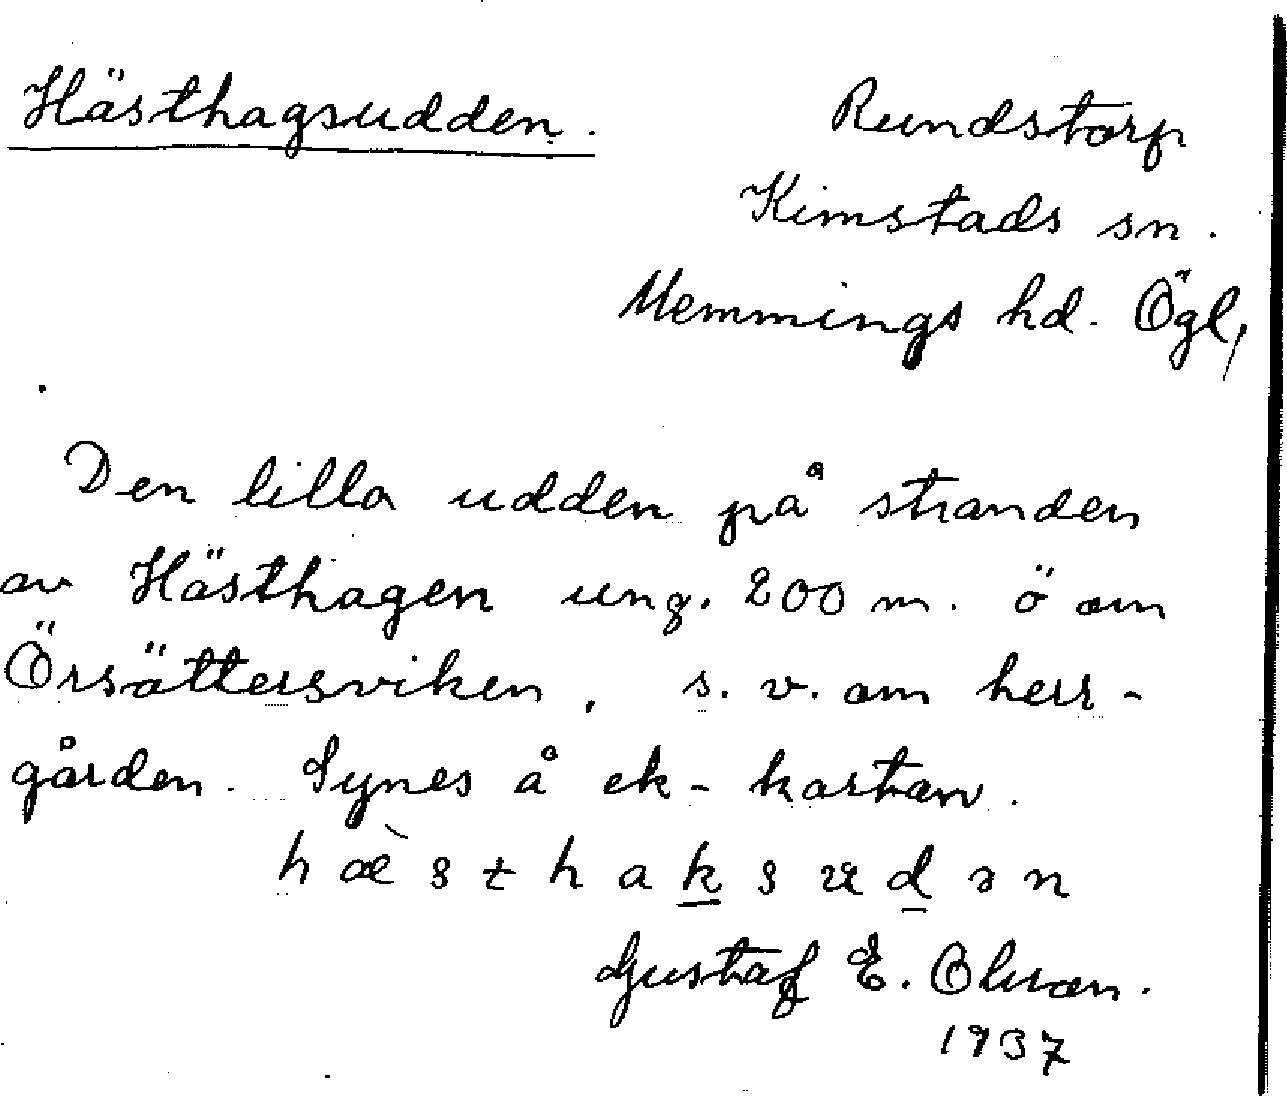 Hästhagsudden.
Rundstorp
Kimstads sn.
Memmings hd. Ögl,
Den lilla udden på stranden
av Hästhagen ung. 200 m. ö om
Örsättersviken, s. v. om herr-
gården. Synes å ek-kartan.
hæ̀sthaksudən
Gustaf E. Olsson.
1937